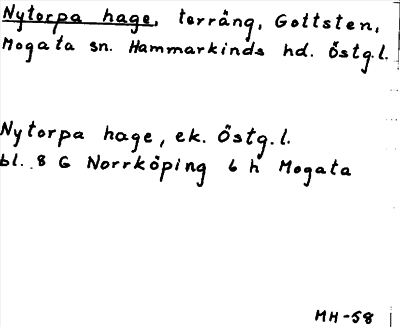 Nytorpa hage, terräng, Gottsten,
Mogata sn. Hammarkinds hd. Östg.l.
Nytorpa hage, ek. Östg.l.
bl. 8 G Norrköping 6 h Mogata
MH-58